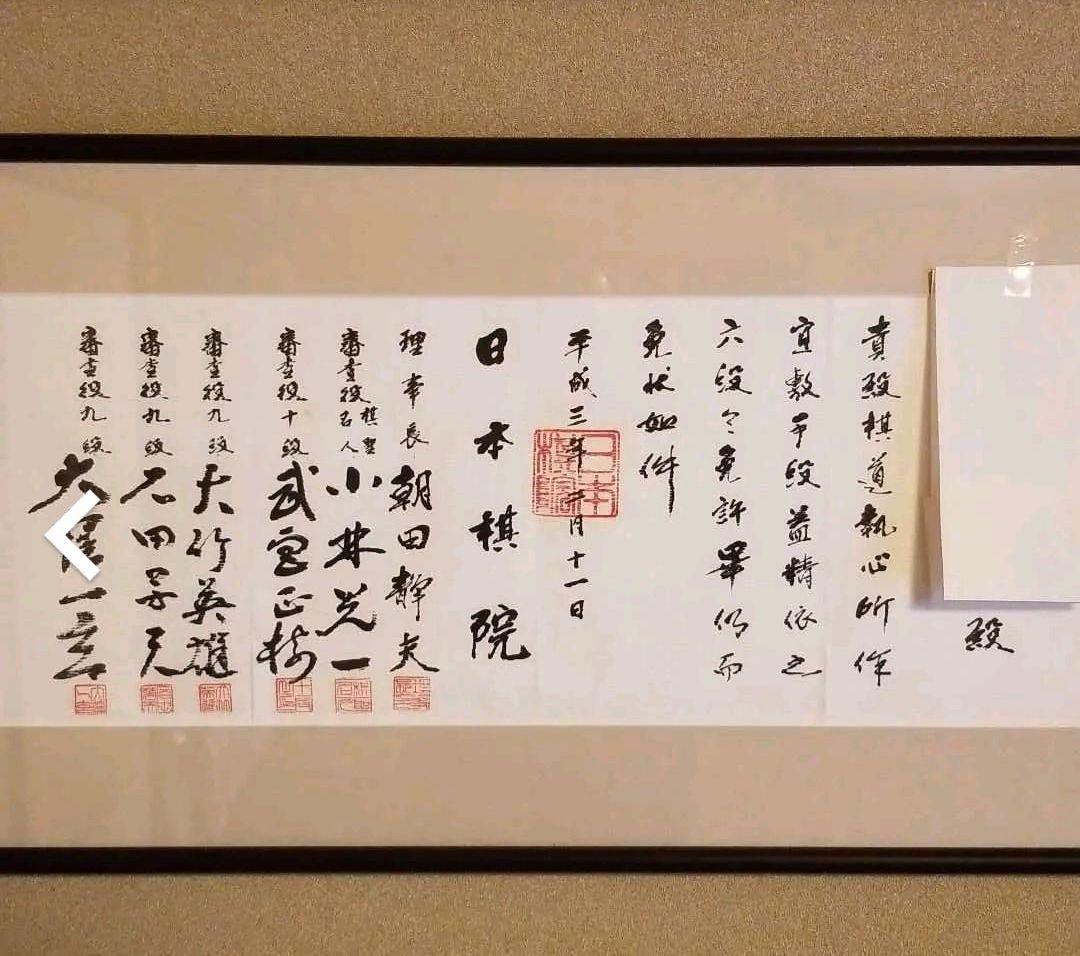 殿
貴殿棋道執心所作
宜敷手段益精依之
六段令免許畢仍而
免状如件
平成三年二月十一日
日本棋院
理事長 朝田静夫
審査役 棋聖 名人 小林光一
審査役十段 武宮正樹
審査役九段 大竹英雄
審査役九段 石田芳夫
審査役九段